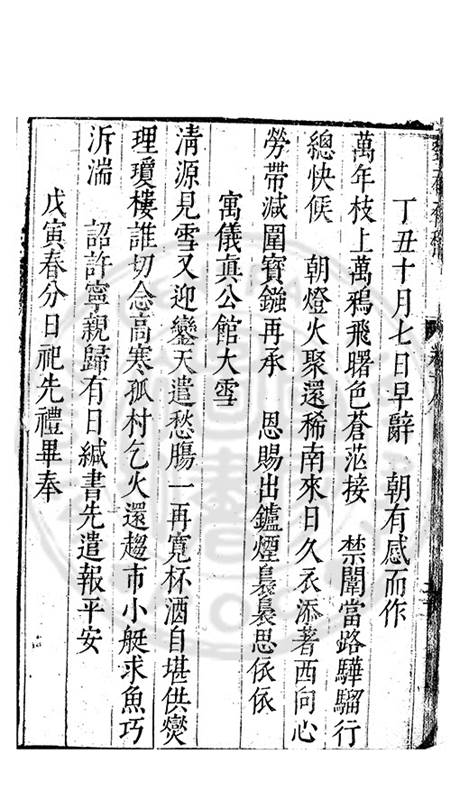 丁丑十月七日早辭　朝有感而作
萬年枝上萬鴉飛曙色蒼茫接　禁闈當路驊騮行
總快候　朝燈火聚還稀南來日久衣添著西向心
勞帶減圍寳鏹再承　恩賜出鑪煙裊裊思依依
寓儀真公館大雪
清源見雪又迎鑾天遣愁腸一再寬杯酒自堪供爕
理瓊樓誰切念高寒孤村乞火還趨市小艇求魚巧
泝湍　詔許寧親歸有日緘書先遣報平安
戊寅春分日祀先禮畢奉